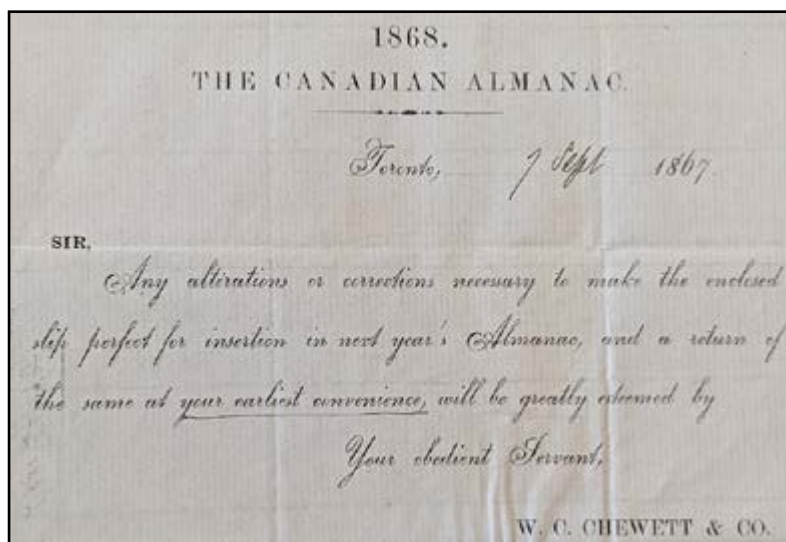 1868.
THE CANADIAN ALMANAC.
Toronto, 7 Sept 1867.
SIR,
Any alterations or corrections necessary to make the enclosed
slip perfect for insertion in next year's Almanac, and a return of
the same at your earliest convenience, will be greatly esteemed by
Your obedient Servant,
W. C. CHEWETT & CO.